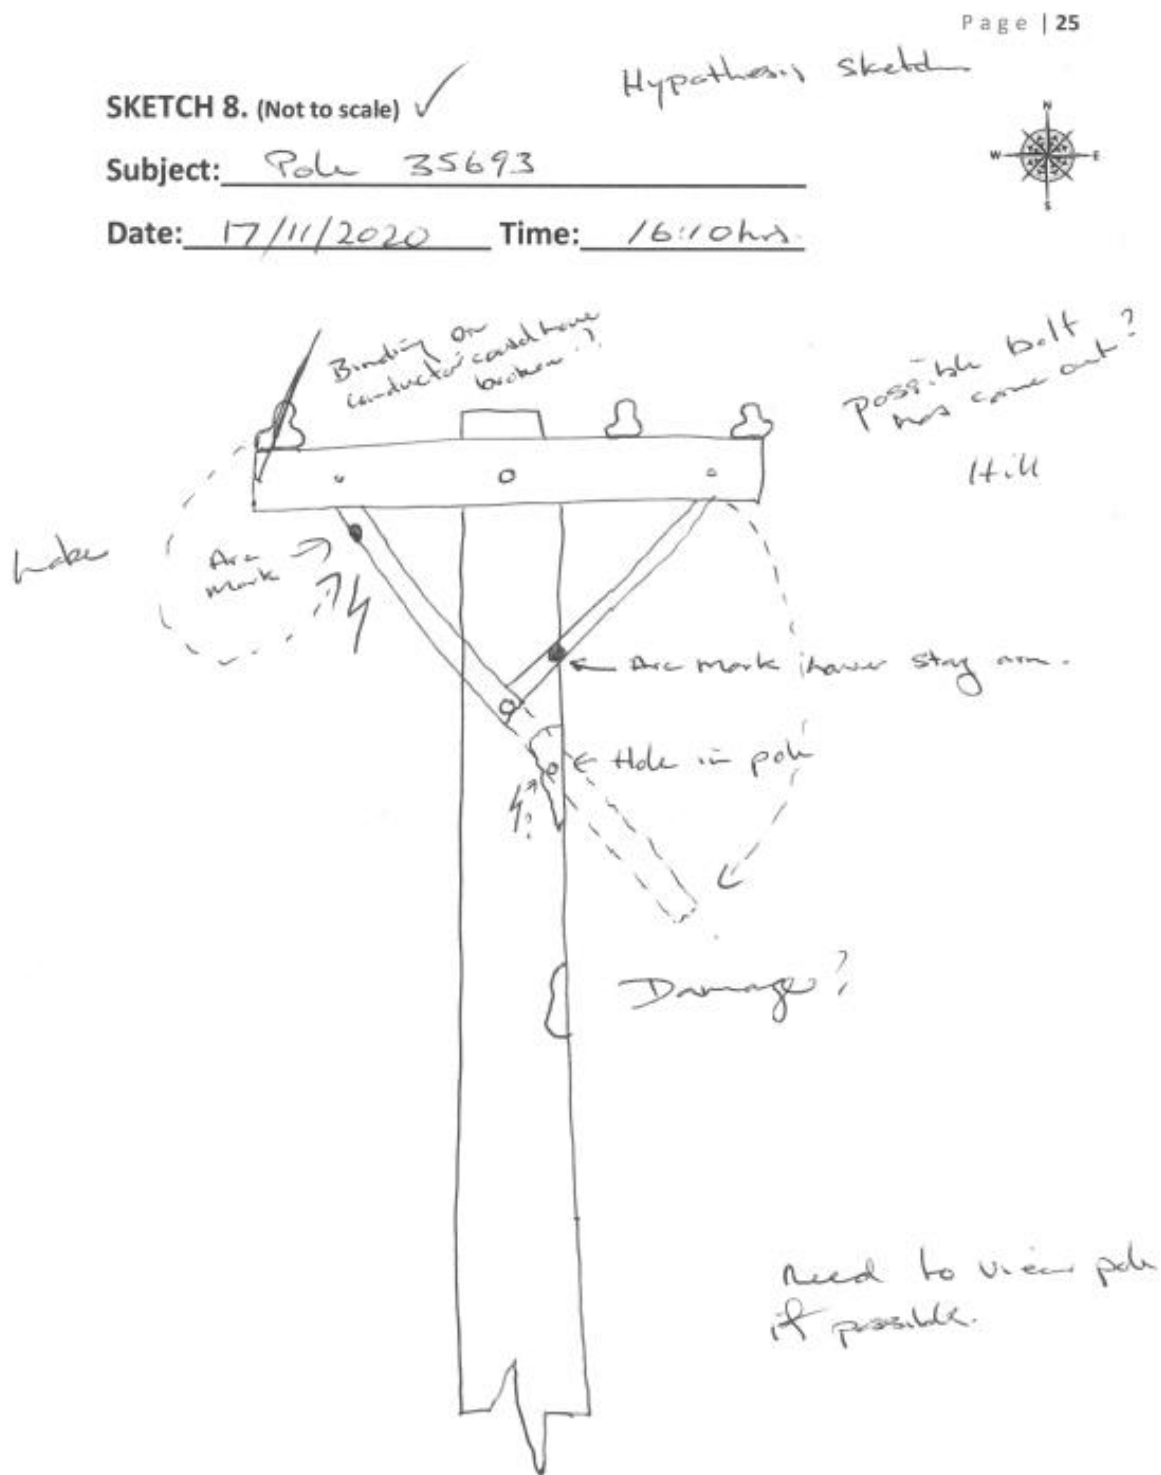 Page | 25
Hypothesis Sketch
SKETCH 8. (Not to scale) ✓
N
W E
S
Subject: Pole 35693
Date: 17/11/2020 Time: 16:10hrs.
Binding on
conductor could have
broken ??
Possible bolt
has come out?
Hill
Lake
Arc
mark
Arc mark lower stay arm.
Hole in pole
?
Damage?
Need to view pole
if possible.